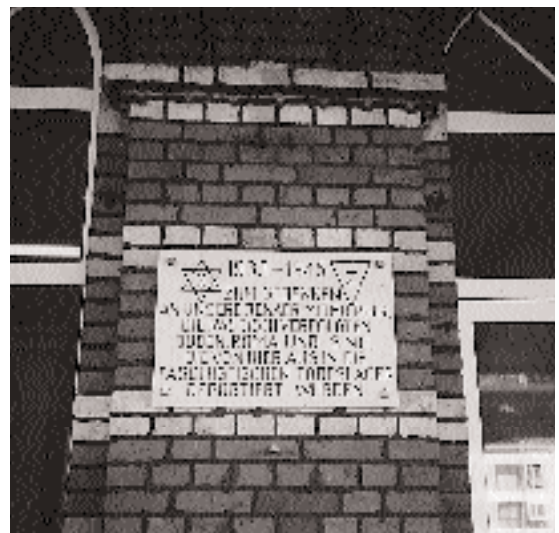 1933-1945
ZUM GEDENKEN
AN UNSERE JENAER MITBÜRGER
DIE RASSISCH VERFOLGTEN
JUDEN, ROMA UND SINTI
DIE VON HIER AUS IN DIE
FASCHISTISCHEN TODESLAGER
DEPORTIERT WURDEN